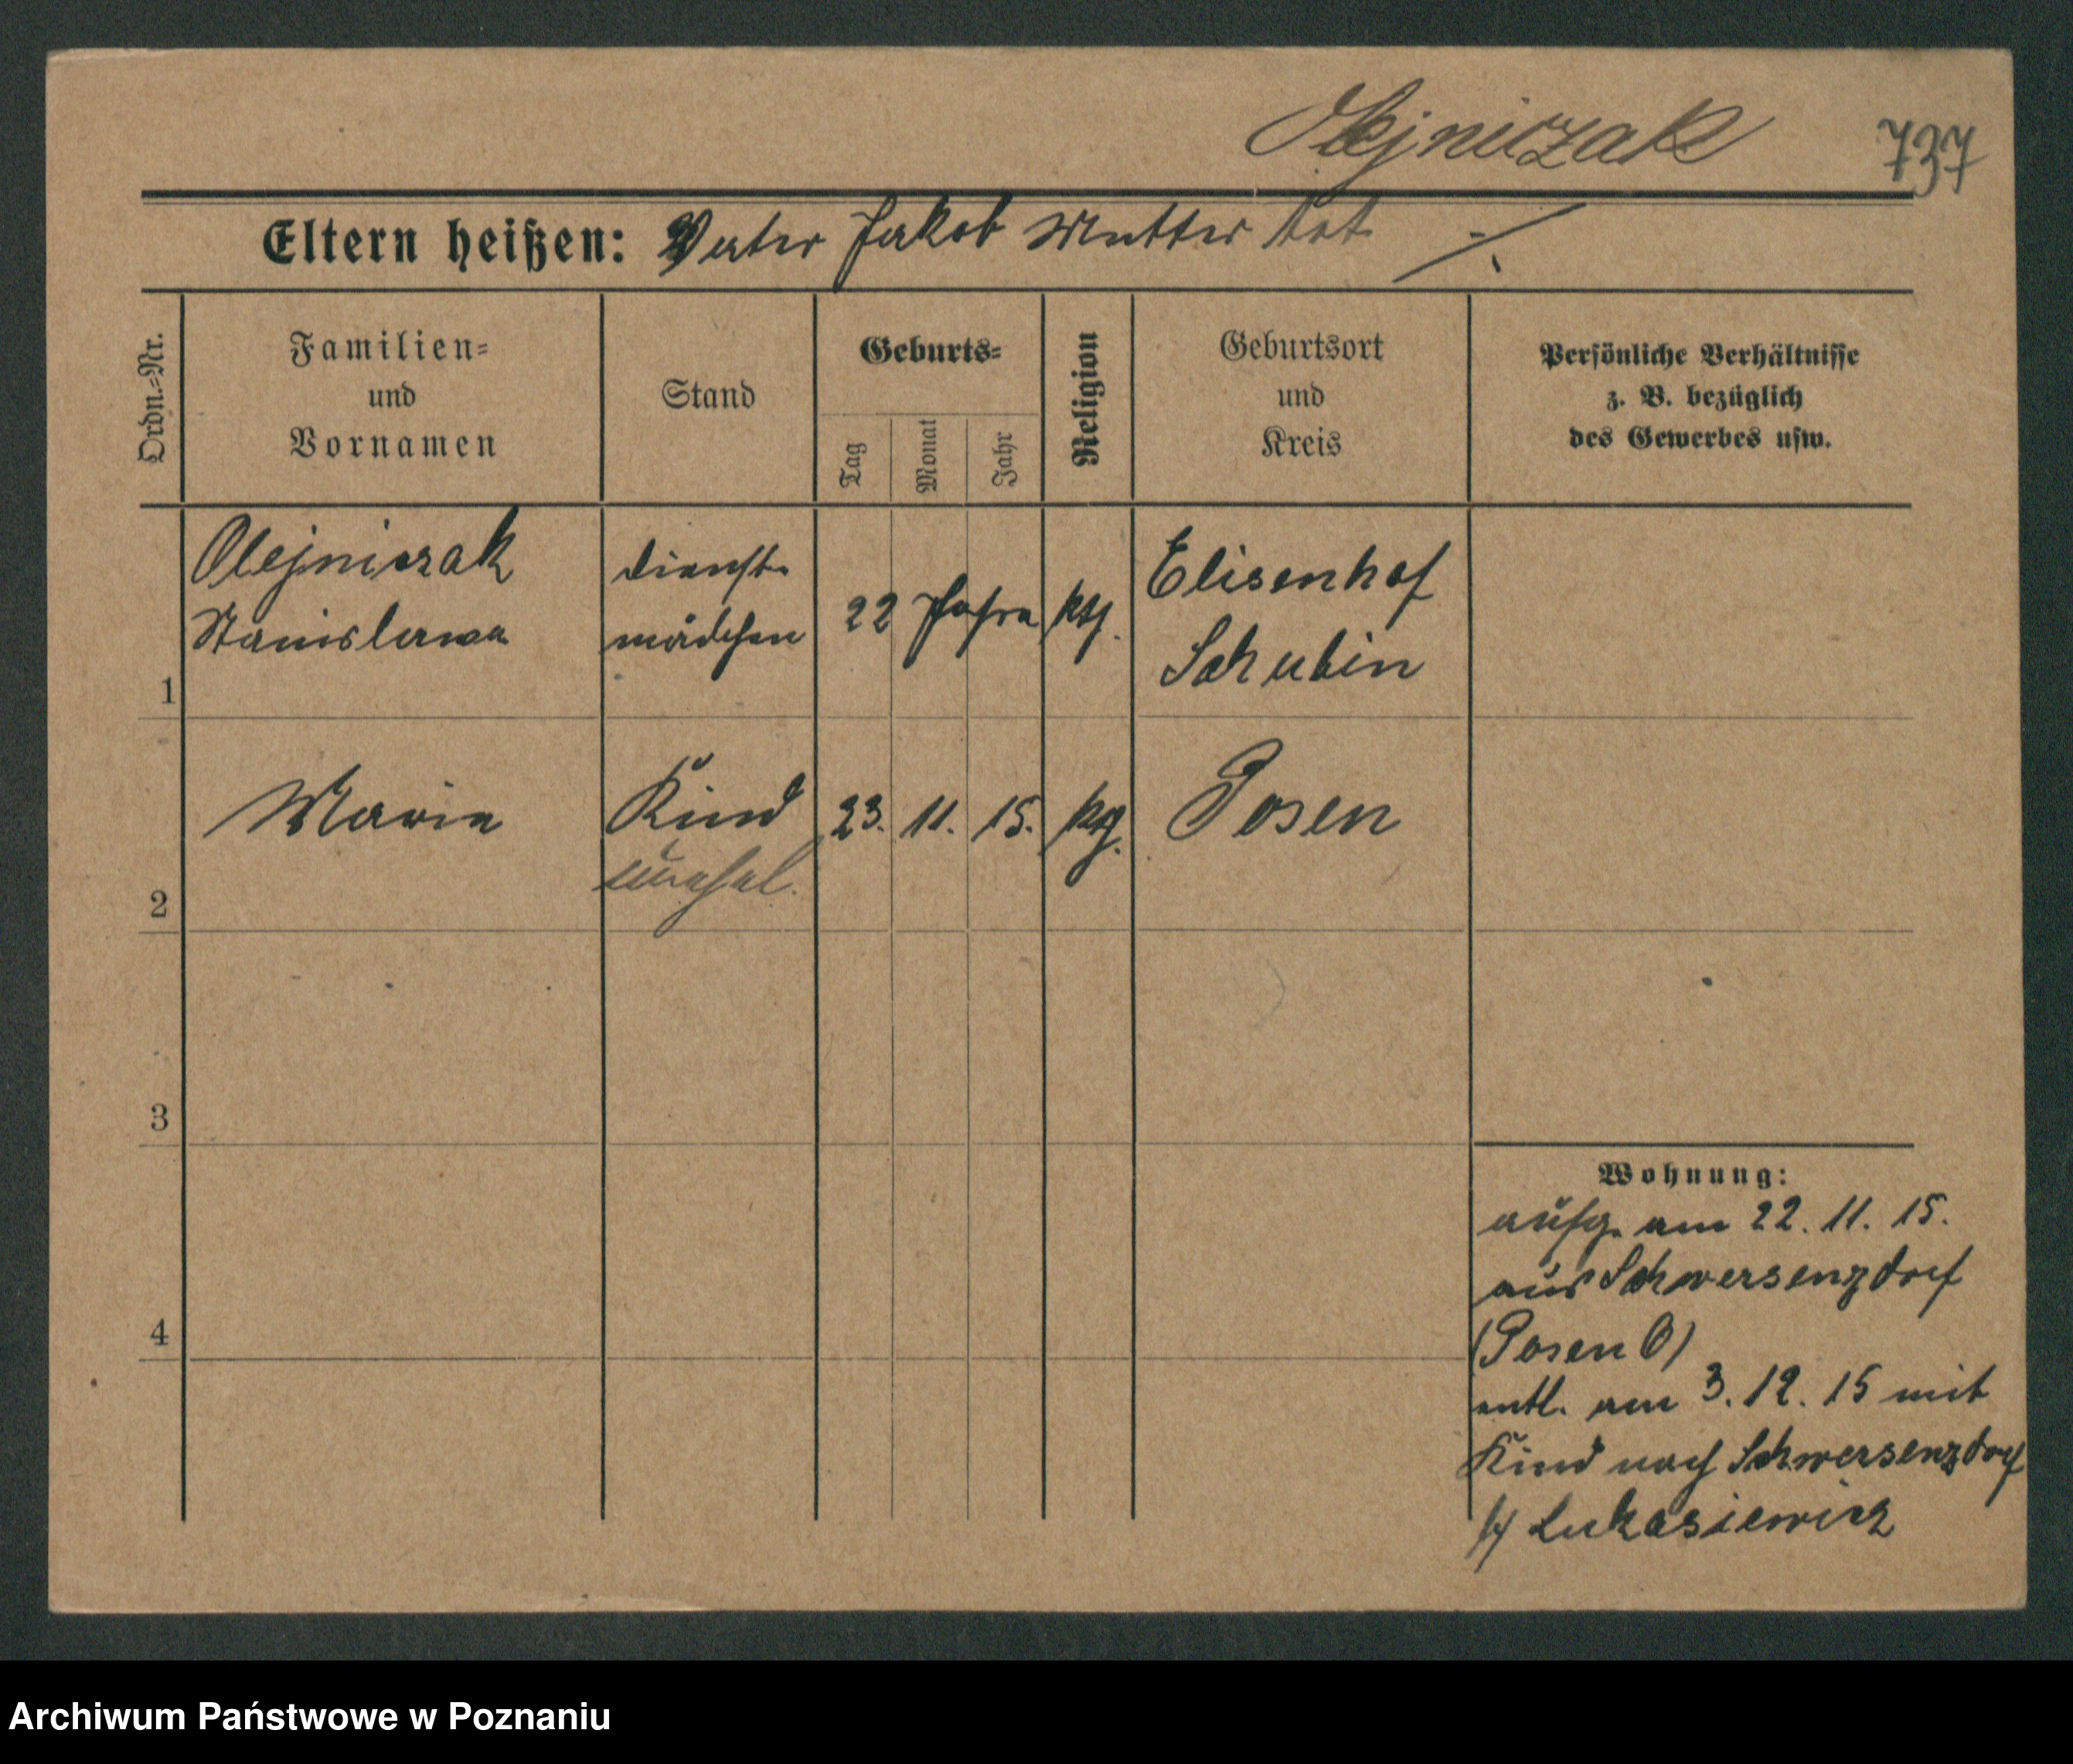 Olejniczak 737
Eltern heißen: Vater Jakob Mutter tot ⁒
Ordn.-Nr.
Familien-
und
Vornamen
Stand
Geburts-
Tag
Monat
Jahr
Religion
Geburtsort
und
Kreis
Persönliche Verhältnisse
z. B. bezüglich
des Gewerbes usw.
1
Olejniczak
Stanislawa
Dienst-
mädchen
22 Jahre
ktl.
Elisenhof
Schubin
2
Maria
Kind
unehel.
23. 11. 15.
Posen
3
4
Wohnung:
aufg. am 22. 11. 15.
aus Schwersenzdorf
(Posen O)
entl. am 3. 12. 15 mit
Kind nach Schwersenzdorf
Lukasiewicz
Archiwum Państwowe w Poznaniu